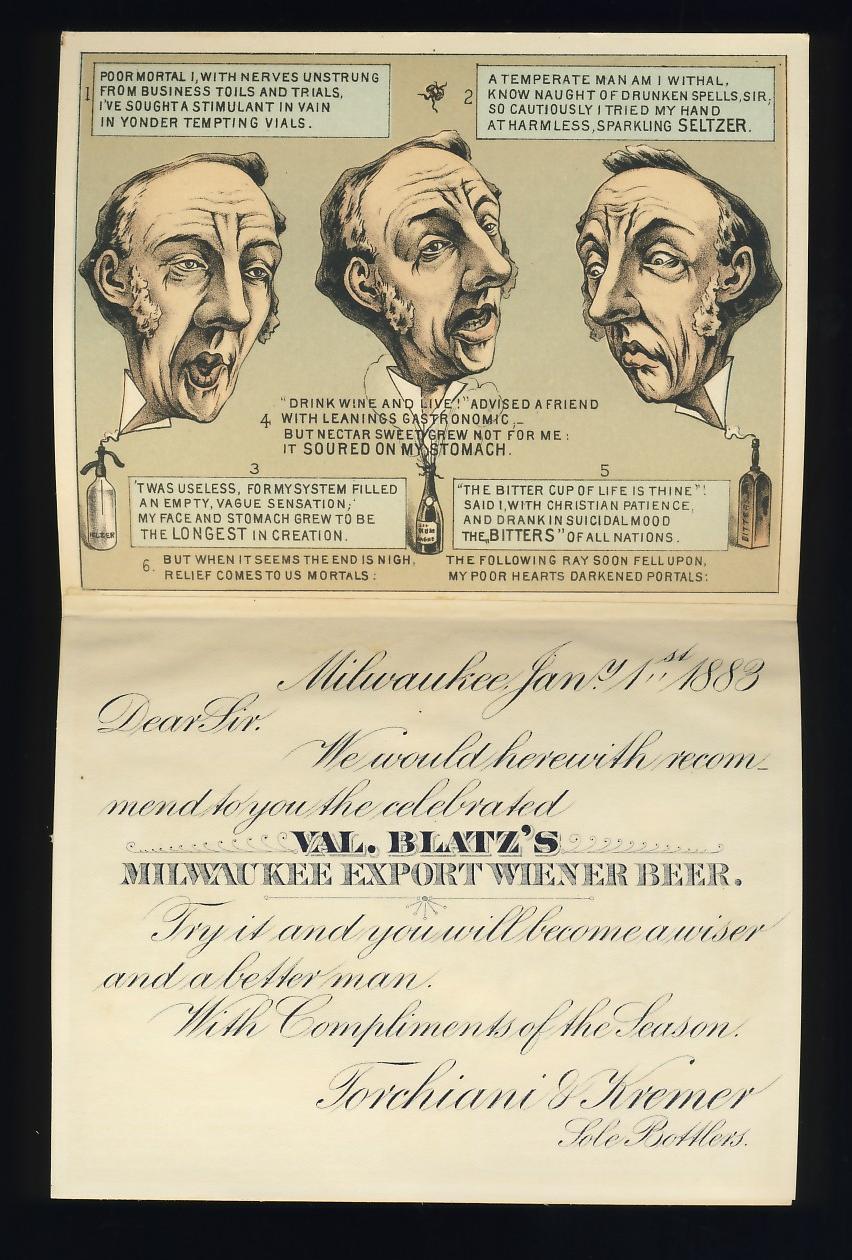 1
POOR MORTAL I, WITH NERVES UNSTRUNG
FROM BUSINESS TOILS AND TRIALS,
I'VE SOUGHT A STIMULANT IN VAIN
IN YONDER TEMPTING VIALS.
2
A TEMPERATE MAN AM I WITHAL,
KNOW NAUGHT OF DRUNKEN SPELLS, SIR;
SO CAUTIOUSLY I TRIED MY HAND
AT HARMLESS, SPARKLING SELTZER.
3
'TWAS USELESS, FOR MY SYSTEM FILLED
AN EMPTY, VAGUE SENSATION;
MY FACE AND STOMACH GREW TO BE
THE LONGEST IN CREATION.
4
"DRINK WINE AND LIVE!" ADVISED A FRIEND
WITH LEANINGS GASTRONOMIC,_
BUT NECTAR SWEET GREW NOT FOR ME:
IT SOURED ON MY STOMACH.
5
"THE BITTER CUP OF LIFE IS THINE"!
SAID I, WITH CHRISTIAN PATIENCE,
AND DRANK IN SUICIDAL MOOD
THE „BITTERS" OF ALL NATIONS.
BITTERS
6. BUT WHEN IT SEEMS THE END IS NIGH,
RELIEF COMES TO US MORTALS:
THE FOLLOWING RAY SOON FELL UPON,
MY POOR HEARTS DARKENED PORTALS:
Milwaukee, Jany. 1st 1883
Dear Sir.
We would herewith recom-
mend to you the celebrated
VAL. BLATZ'S
MILWAUKEE EXPORT WIENER BEER.
Try it and you will become a wiser
and a better man.
With Compliments of the Season.
Torchiani & Kremer
Sole Bottlers.